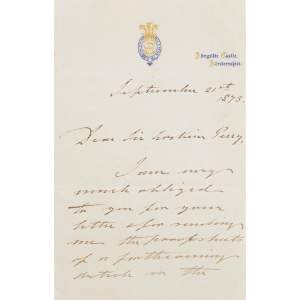 Abergeldie Castle,
Aberdeenshire.
September 21st
1875.
Dear Sir Erskine Perry,
I am very
much obliged
to you for your
letter & for sending
me the proof sheets
of a forthcoming
article in the